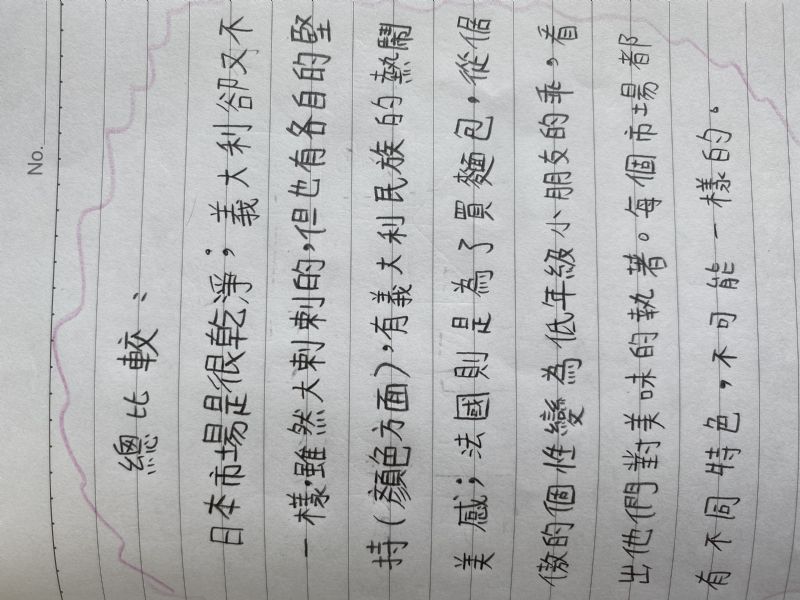 No.
總比較：
日本市場是很乾淨；義大利卻又不
一樣，雖然大剌剌的，但也有各自的堅
持（顏色方面），有義大利民族的熱鬧
美感；法國則是為了買麵包，從倨
傲的個性變為低年級小朋友的乖，看
出他們對美味的執著。每個市場都
有不同特色，不可能一樣的。